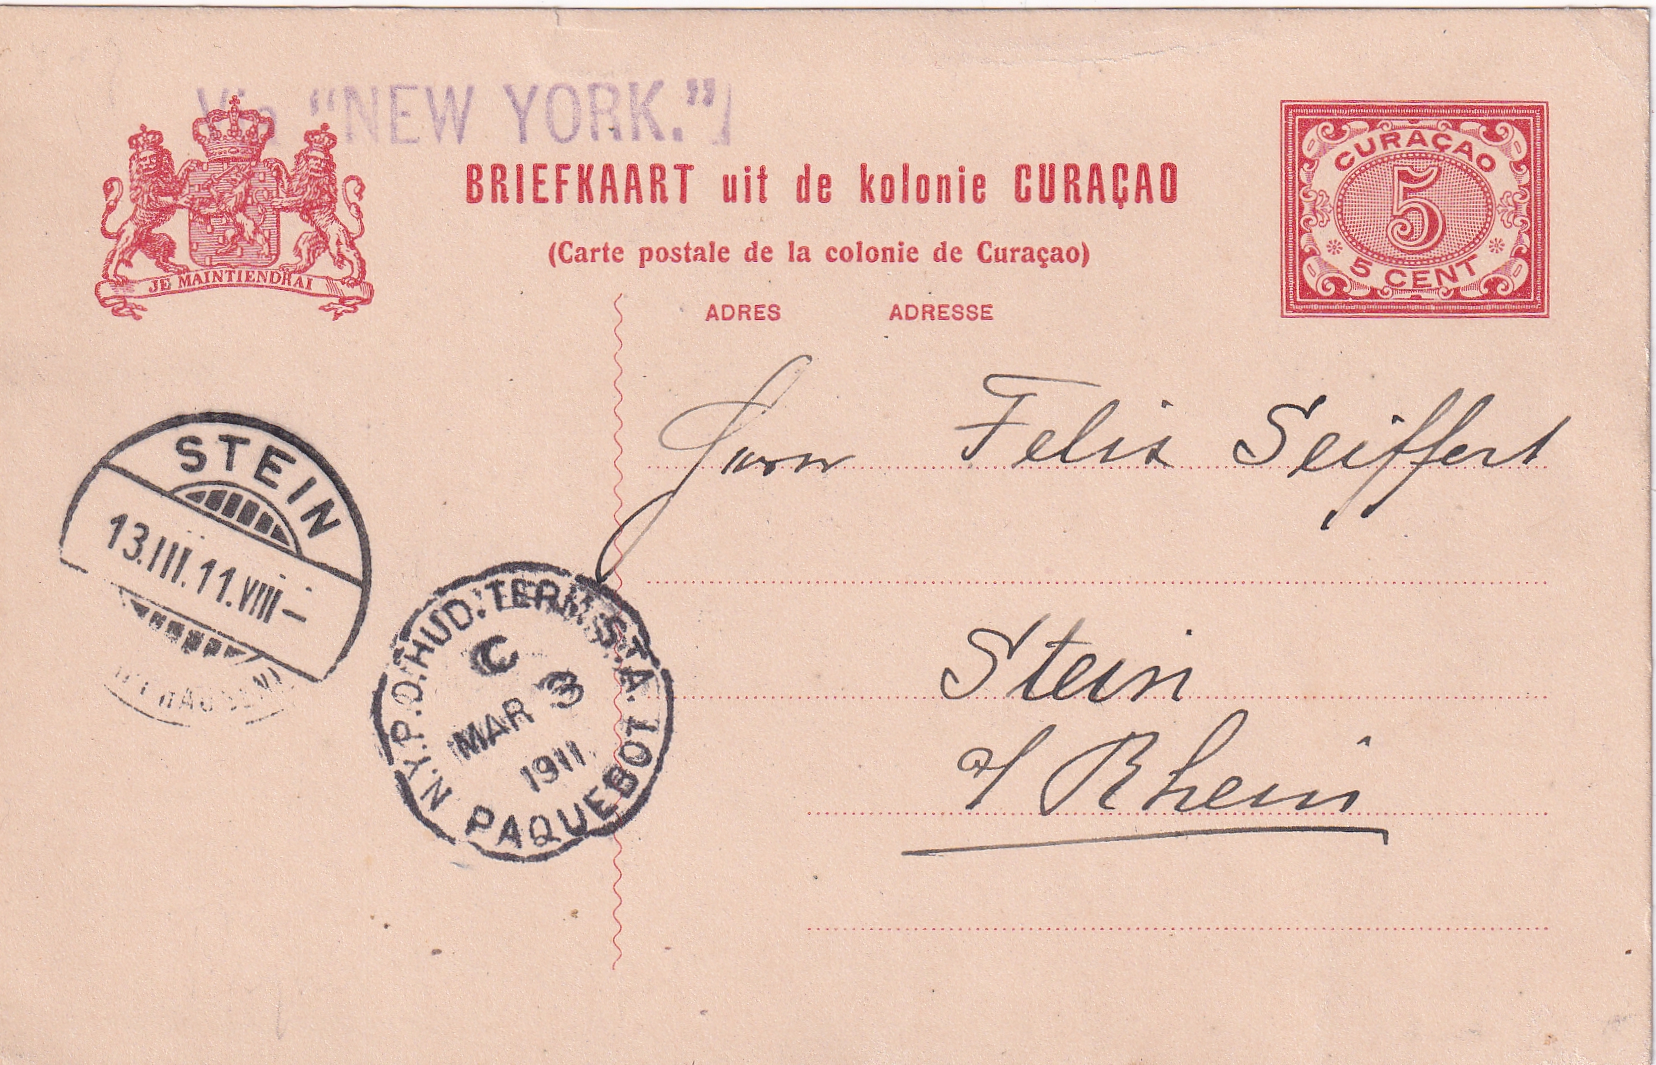 Via "NEW YORK."]
BRIEFKAART uit de kolonie CURAÇAO
(Carte postale de la colonie de Curaçao)
JE MAINTIENDRAI
CURAÇAO
5
5 CENT
ADRES ADRESSE
Herrn Felix Seiffert
Stein
a/Rhein
STEIN
13.III.11.VIII–
N.Y.P.O. HUD. TERM. STA.
C
MAR 3
1911
PAQUEBOT